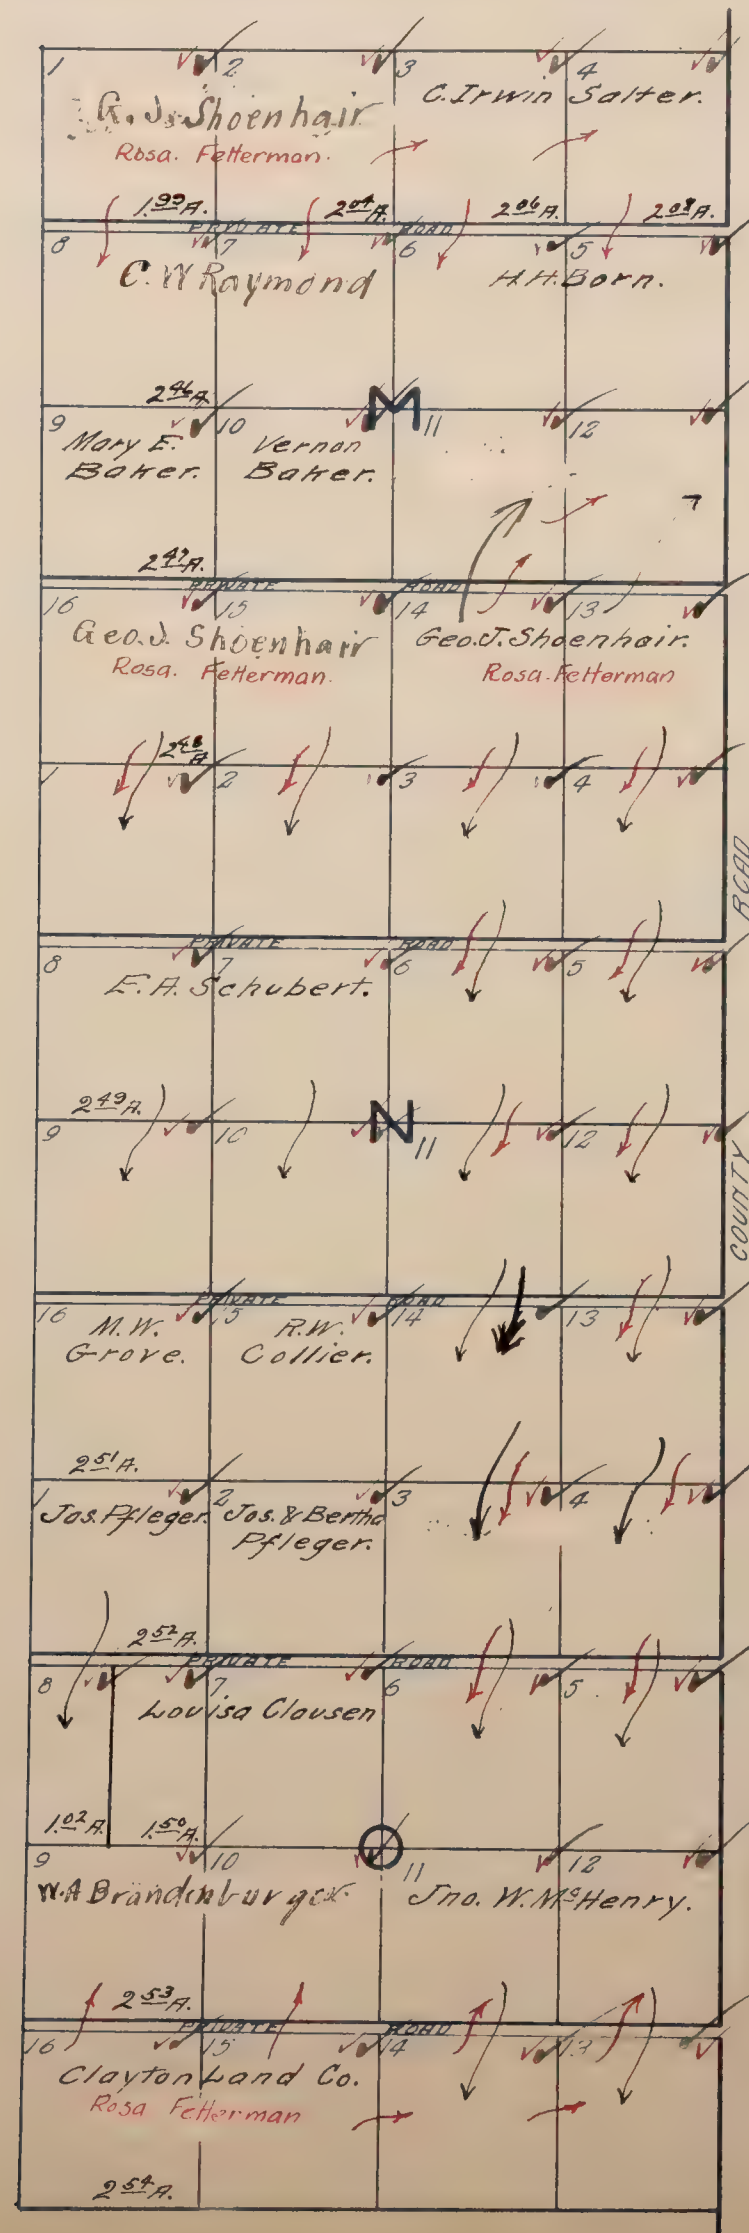 1 2 3 4
G. J. Shoenhair
C. Irwin Salter.
Rosa. Fetterman.
1.99 A. 2 04 A. 2 06 A. 2 08 A.
PRIVATE ROAD
8 7 6 5
C. W Raymond
H. H. Born.
2 46 A.
9 10 M 11 12
Mary E. Baker.
Vernon Baker.
2 47 A.
PRIVATE ROAD
16 15 14 13
Geo. J. Shoenhair
Geo. J. Shoenhair.
Rosa. Fetterman.
Rosa. Fetterman
2 48 A
1 2 3 4
COUNTY ROAD
PRIVATE ROAD
8 7 6 5
E. A. Schubert.
2 49 A.
9 10 N 11 12
PRIVATE ROAD
16 15 14 13
M. W. Grove.
R. W. Collier.
2 51 A.
1 2 3 4
Jos. Pfleger.
Jos. & Bertha Pfleger.
2 52 A.
PRIVATE ROAD
8 7 6 5
Louisa Clausen
1.02 A. 1.50 A.
9 10 O 11 12
W. A Brandenburger.
Jno. W. McHenry.
2 53 A.
PRIVATE ROAD
16 15 14 13
Clayton Land Co.
Rosa Fetterman
2 54 A.